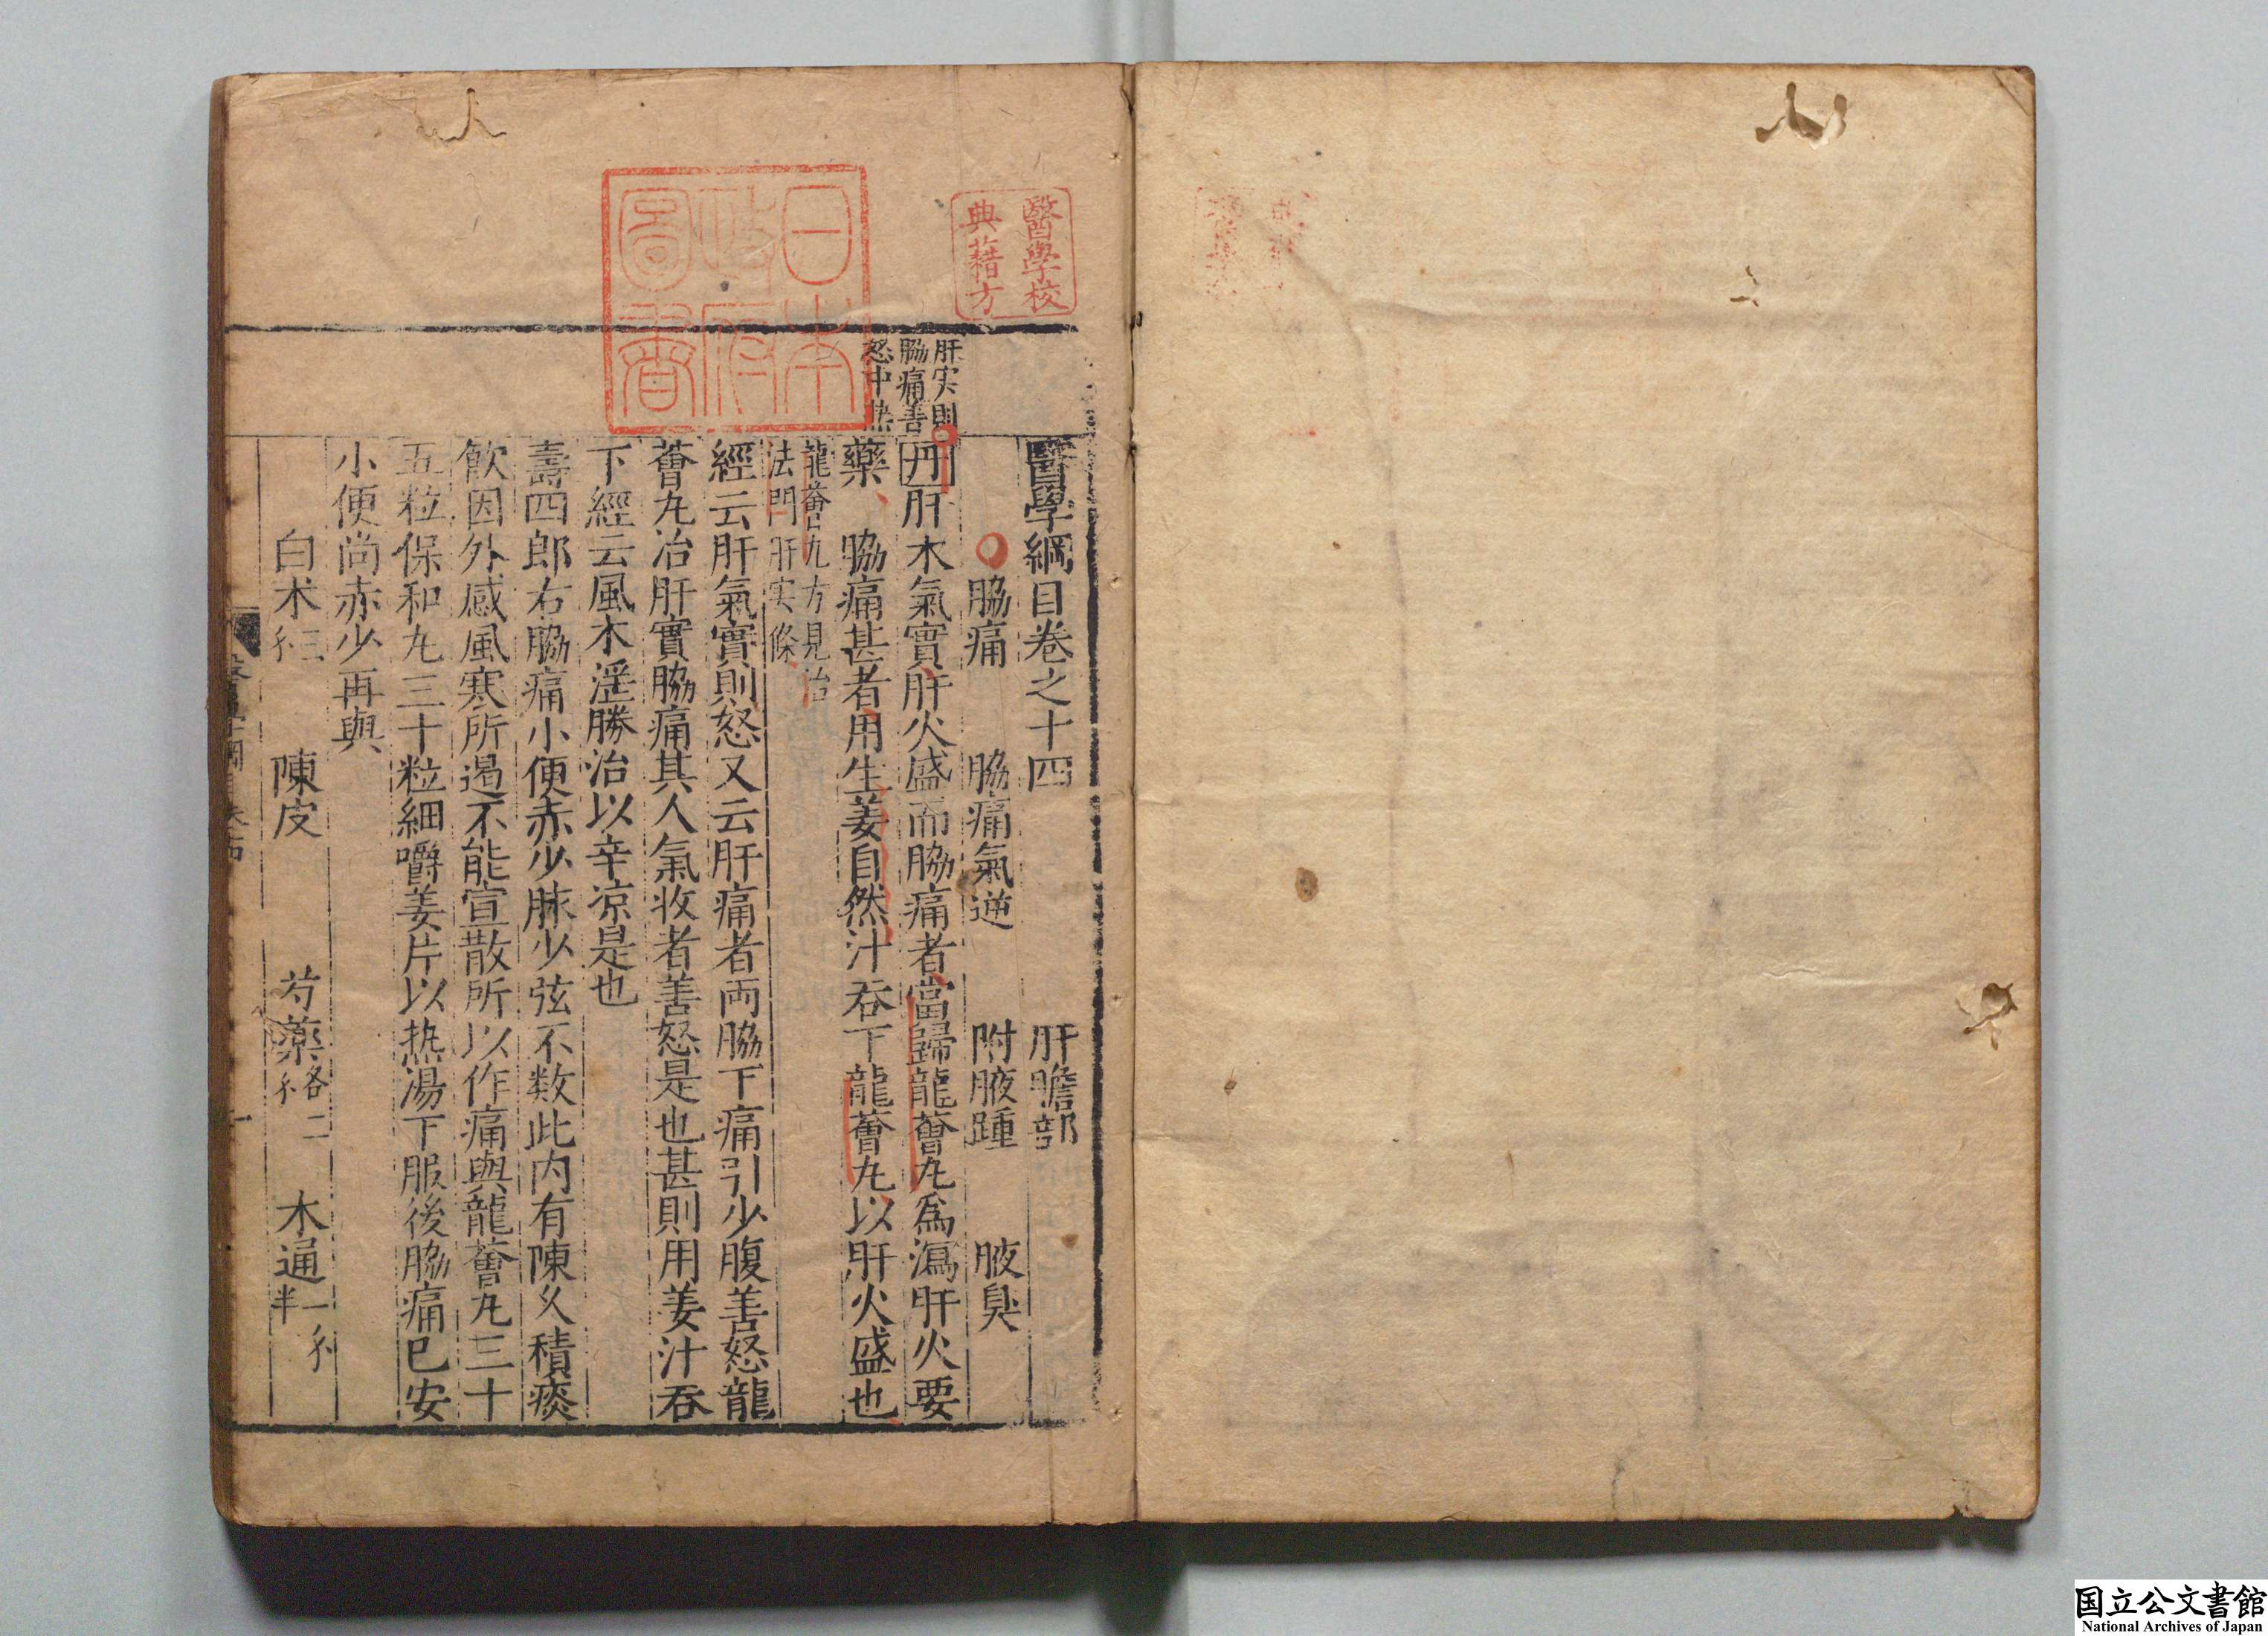 醫學校
典藉方
日本
政府
圖書
肝実則
脇痛善
怒中熱
醫學綱目卷之十四　肝膽部
脇痛　脇痛氣逆　附腋踵　腋臭
丹肝木氣實肝火盛而脇痛者當歸龍薈丸爲瀉肝火要
藥　脇痛甚者用生姜自然汁吞下龍薈丸以肝火盛也
龍薈丸方見治
法門肝実條
經云肝氣實則怒又云肝痛者両脇下痛引少腹善怒龍
薈丸治肝實脇痛其人氣收者善怒是也甚則用姜汁吞
下經云風木淫勝治以辛凉是也
壽四郎右脇痛小便赤少脉少弦不数此内有陳久積痰
飲因外感風寒所遏不能宣散所以作痛與龍薈丸三十
五粒保和丸三十粒細嚼姜片以热湯下服後脇痛已安
小便尚赤少再與
白术三彳　陳皮　芍薬各二彳　木通一彳半
醫學綱目卷十四　一
国立公文書館
National Archives of Japan